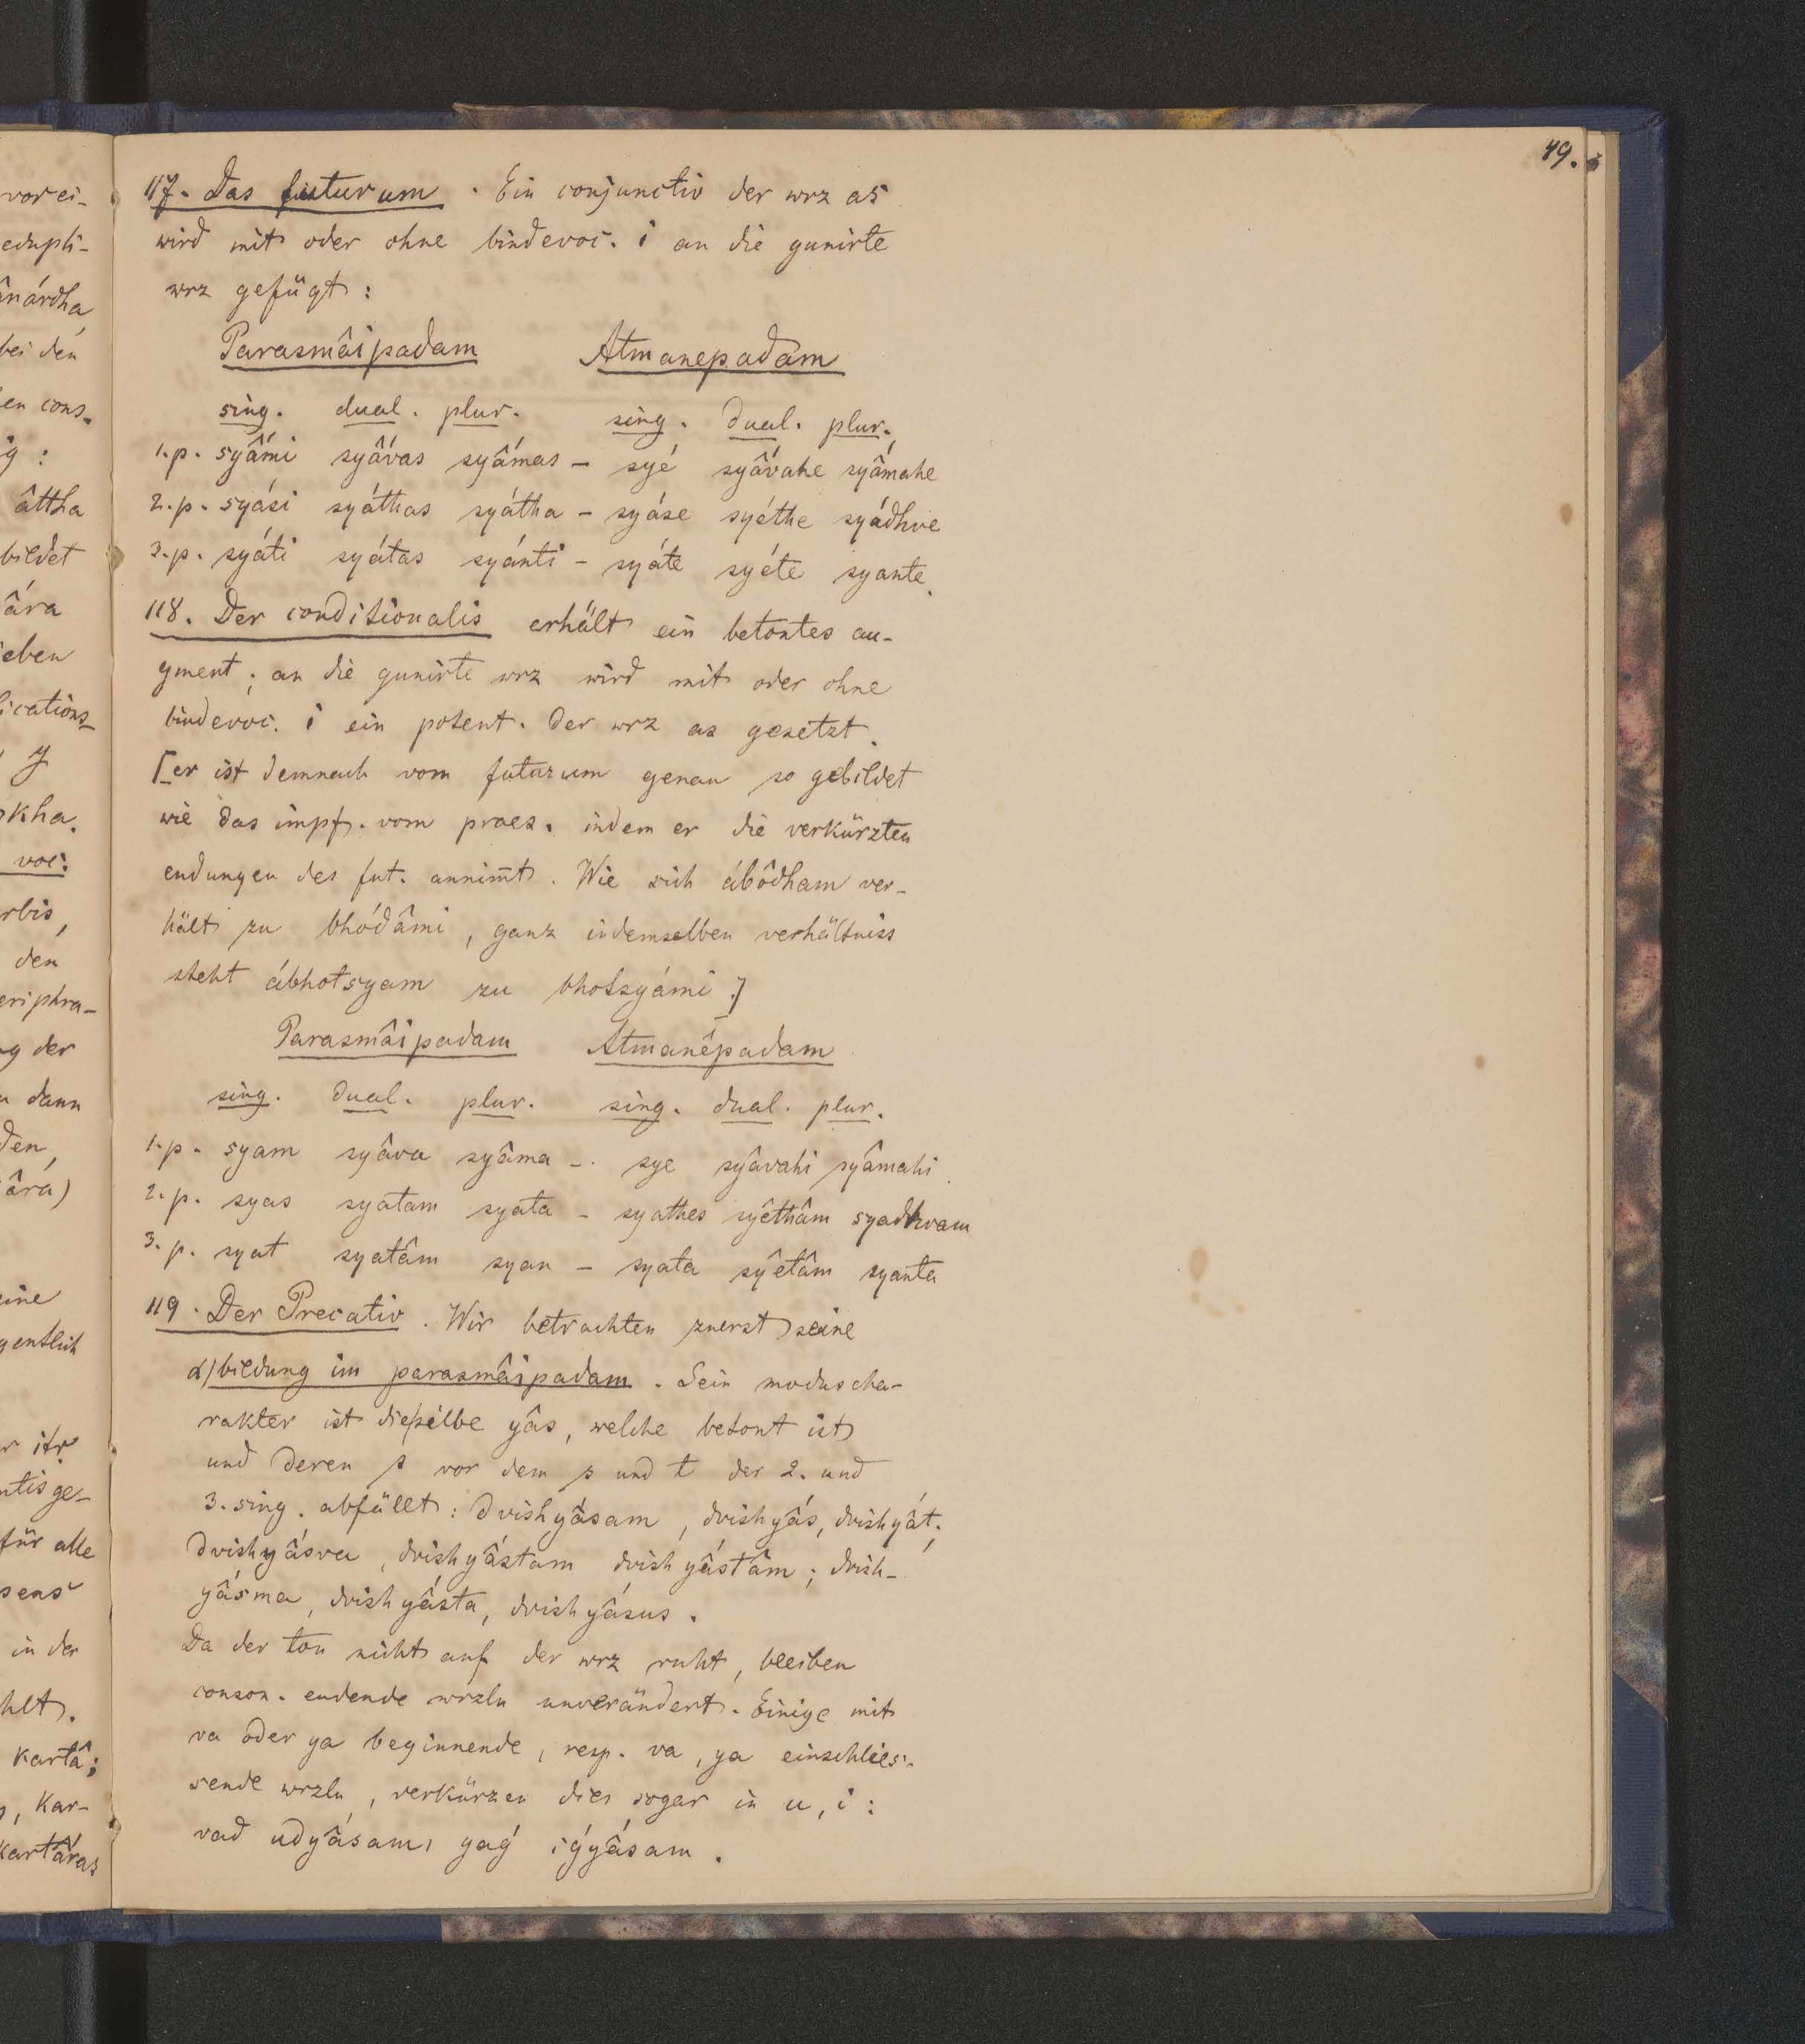 49.
vor ei-
edupli-
ânárdha
bei den
en cons.
ig :
âttha
bildet
âra
eben
lications-
y
kha.
voc.
rbis,
den
eriphra-
ng der
dann
den,
âra)
eine
gentlich
r itr
ntis ge-
für alle
sens
in der
hlt.
kartâ;
, kar-
kartâras
117. Das futurum . Ein conjunctiv der wrz as
wird mit oder ohne bindevoc. i an die gunirte
wrz gefügt :
Parasmâipadam Atmanepadam
sing. dual. plur. sing. dual. plur.
1.p. syấmi syấvas syấmas – syé syấvahe syấmahe
2.p. syási syáthas syátha – syáse syéthe syádhve
3.p. syáti syátas syánti – syáte syéte syante.
118. Der conditionalis erhält ein betontes au-
gment; an die gunirte wrz wird mit oder ohne
bindevoc. i ein potent. der wrz as gesetzt.
[er ist demnach vom futurum genau so gebildet
wie das impf. vom praes. indem er die verkürzten
endungen des fut. annim̄t. Wie sich ábôdham ver-
hält zu bhódâmi, ganz indemselben verhältniss
steht ábhotsyam zu bhotsyámi.]
Parasmâipadam Atmanêpadam
sing. dual. plur. sing. dual. plur.
1.p. syam syâva syâma – sye syâvahi syâmahi.
2.p. syas syatam syata – syathes syêthâm syadhvam
3.p. syat syatâm syan – syata syêtâm syanta
119. Der Precativ. Wir betrachten zuerst seine
α) bildung im parasmâipadam. Sein moduscha-
rakter ist die silbe yâs, welche betont ist
und deren s vor dem s und t der 2. und
3. sing. abfällt: dvishyấsam, dvishyấs, dvishyất;
dvishyấsva, dvishyấstam dvishyấstâm; dvish-
yấsma, dvishyấsta, dvishyấsus.
Da der ton nicht auf der wrz ruht, bleiben
conson. endende wrzln unverändert. Einige mit
va oder ya beginnende, resp. va, ya einschlies-
sende wrzln, verkürzen dies sogar in u, i :
vad udyấsam, yaǵ iǵyấsam.